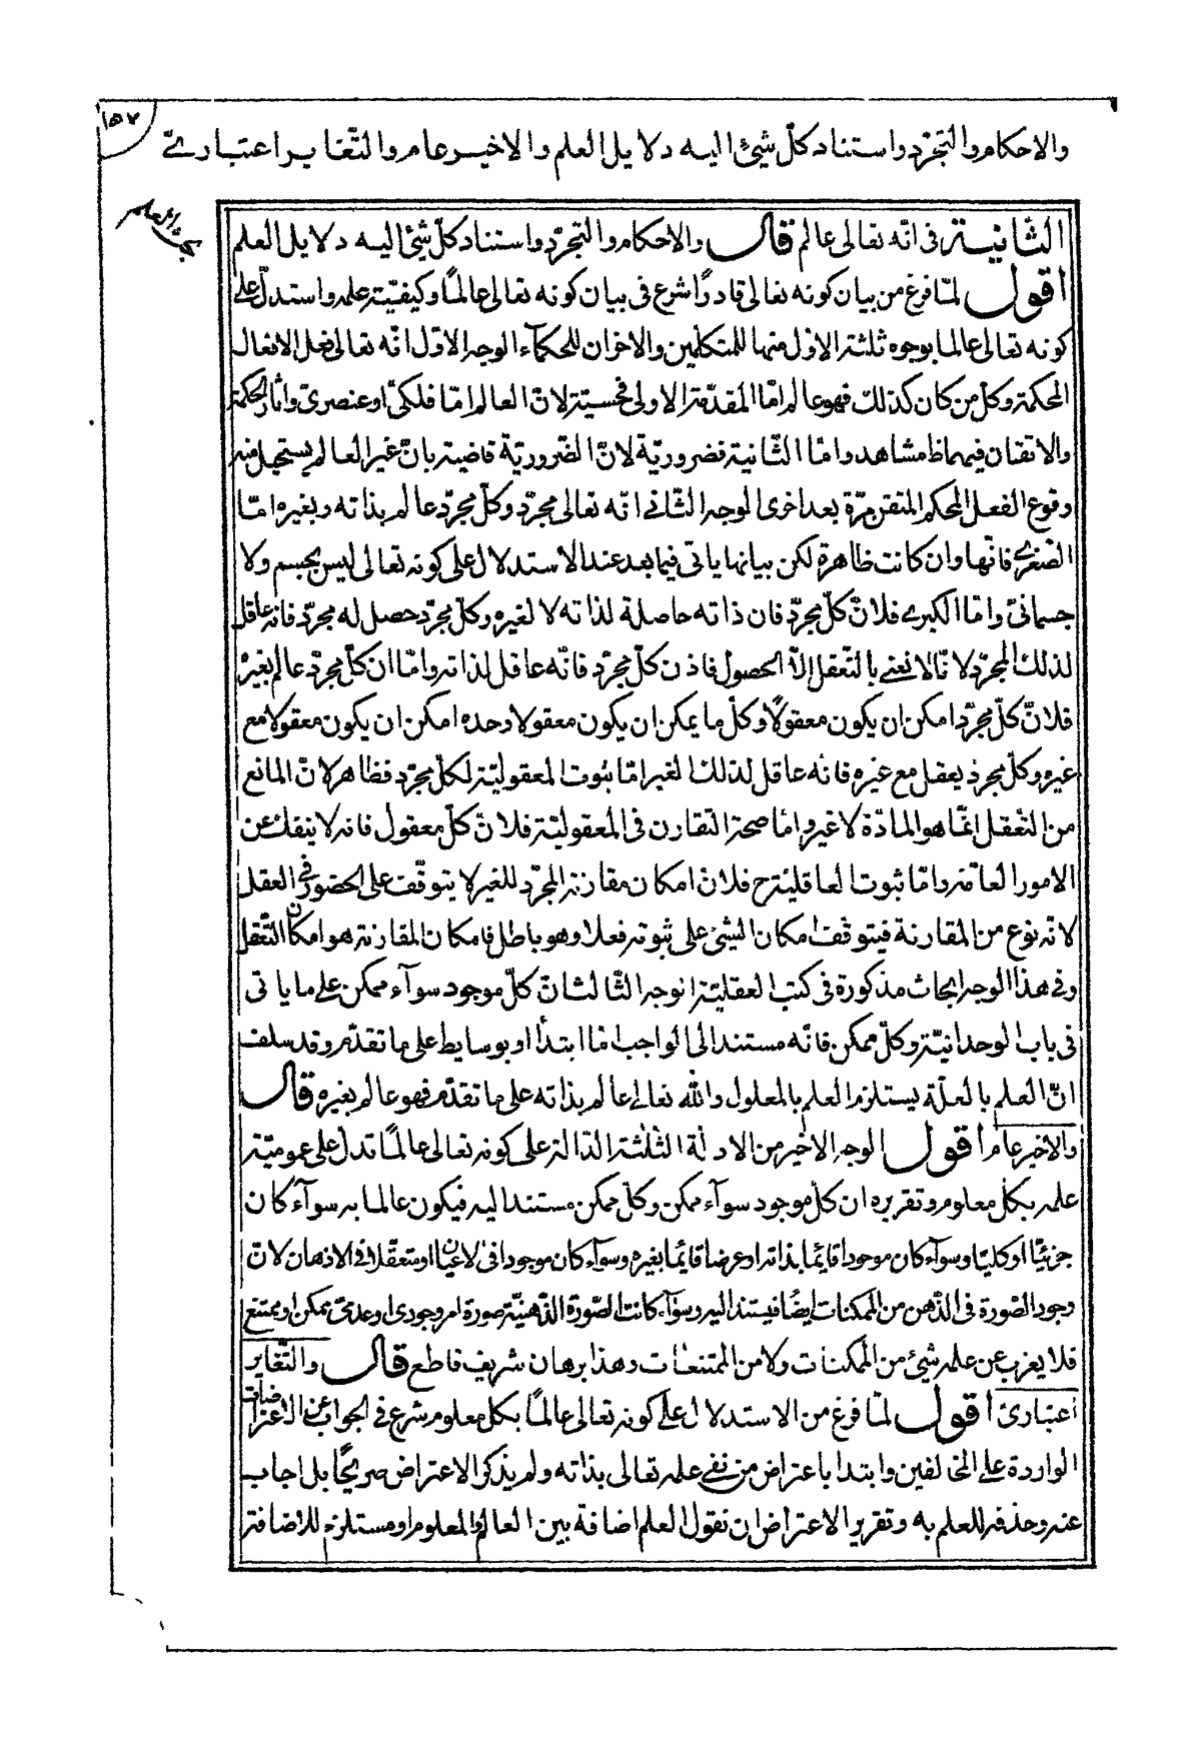 ١٥٧
والاحكام والتجرّد واستناد كلّ شيئ اليه دلايل العلم والاخير عام والتّغاير اعتباريّ
الثّانية فى انّه تعالى عالم قال والاحكام والتجرّد واستناد كلّ شيئ اليه دلايل العلم
اقول لمّا فرغ من بيان كونه تعالى قادرًا شرع فى بيان كونه تعالى عالمًا وكيفيّة علمه واستدلّ على
كونه تعالى عالما بوجوه ثلثة الاوّل منها للمتكلّمين والاخران للحكمآء الوجه الاوّل انّه تعالى فعل الافعال
المحكمة وكلّ من كان كذلك فهو عالم امّا المقدّمة الاولى فحسيّة لانّ العالم امّا فلكىّ او عنصرىّ واثار الحكمة
والاتقان فيهما ظ مشاهد وامّا الثّانية فضروريّة لانّ الضّروريّة قاضية بانّ غير العالم يستحيل منه
وقوع الفعل المحكم المتقن مرّة بعد اخرى الوجه الثّانى انّه تعالى مجرّد وكلّ مجرّد عالم بذاته وبغيره امّا
الصّغرى فانّها وان كانت ظاهرة لكن بيانها ياتى فيما بعد عند الاستدلال على كونه تعالى ليس بجسم ولا
جسمانىّ وامّا الكبرى فلانّ كلّ مجرّد فان ذاته حاصلة لذاته لا لغيره وكلّ مجرّد حصل له مجرّد فانه عاقل
لذلك المجرّد لانّا لا نعنى بالتّعقل الّا الحصول فاذن كلّ مجرّد فانّه عاقل لذاته وامّا ان كلّ مجرّد عالم بغيره
فلانّ كلّ مجرّد امكن ان يكون معقولًا وكلّ ما يمكن ان يكون معقولا وحده امكن ان يكون معقولا مع
غيره وكلّ مجرد يعقل مع غيره فانه عاقل لذلك الغير امّا ثبوت المعقوليّة لكلّ مجرّد فظاهر لانّ المانع
من التّعقل انّما هو المادّة لا غير وامّا صحة التقارن فى المعقوليّة فلانّ كلّ معقول فانه لا ينفك عن
الامور العامّة وامّا ثبوت العاقلية ح فلان امكان مقارنة المجرّد للغير لا يتوقّف على الحضور فى العقل
لانّه نوع من المقارنة فيتوقّف امكان الشيئ على ثبوته فعلا وهو باطل فامكان المقارنة هو امكان التّعقل
وفى هذا الوجه ابحاث مذكورة فى كتب العقليّة الوجه الثّالث انّ كلّ موجود سوآء ممكن على ما ياتى
فى باب الوحدانيّة وكلّ ممكن فانّه مستند الى الواجب امّا ابتدأ او بوسايط على ما تقدّم وقد سلف
انّ العلم بالعلّة يستلزم العلم بالمعلول والله تعالى عالم بذاته على ما تقدّم فهو عالم بغيره قال
والاخير عام اقول الوجه الاخير من الادلّة الثّلثة الدّالة على كونه تعالى عالمًا تدلّ على عموميّة
علمه بكلّ معلوم وتقريره ان كلّ موجود سوآء ممكن وكلّ ممكن مستند اليه فيكون عالما به سوآء كان
جزئيّا او كليّا وسوآء كان موجودا قايمًا بذاته او عرضا قايمًا بغيره وسوآء كان موجودا فى الاعيان او متعقلا فى الاذهان لانّ
وجود الصّورة فى الذّهن من الممكنات ايضًا فيستند اليه وسوآء كانت الصّورة الذّهنيّة صورة امر وجودى او عدمىّ ممكن او ممتنع
فلا يعزب عن علمه شيئ من الممكنات ولا من الممتنعات وهذا برهان شريف قاطع قال والتّغاير
اعتبارىّ اقول لمّا فرغ من الاستدلال على كونه تعالى عالمًا بكلّ معلوم شرع فى الجواب عن الاعتراضات
الواردة على المخالفين وابتدا باعتراض من نفى علمه تعالى بذاته ولم يذكر الاعتراض صريحًا بل اجاب
عنه وحذفه للعلم به وتقرير الاعتراض ان نقول العلم اضافة بين العالم والمعلوم او مستلزم للاضافة